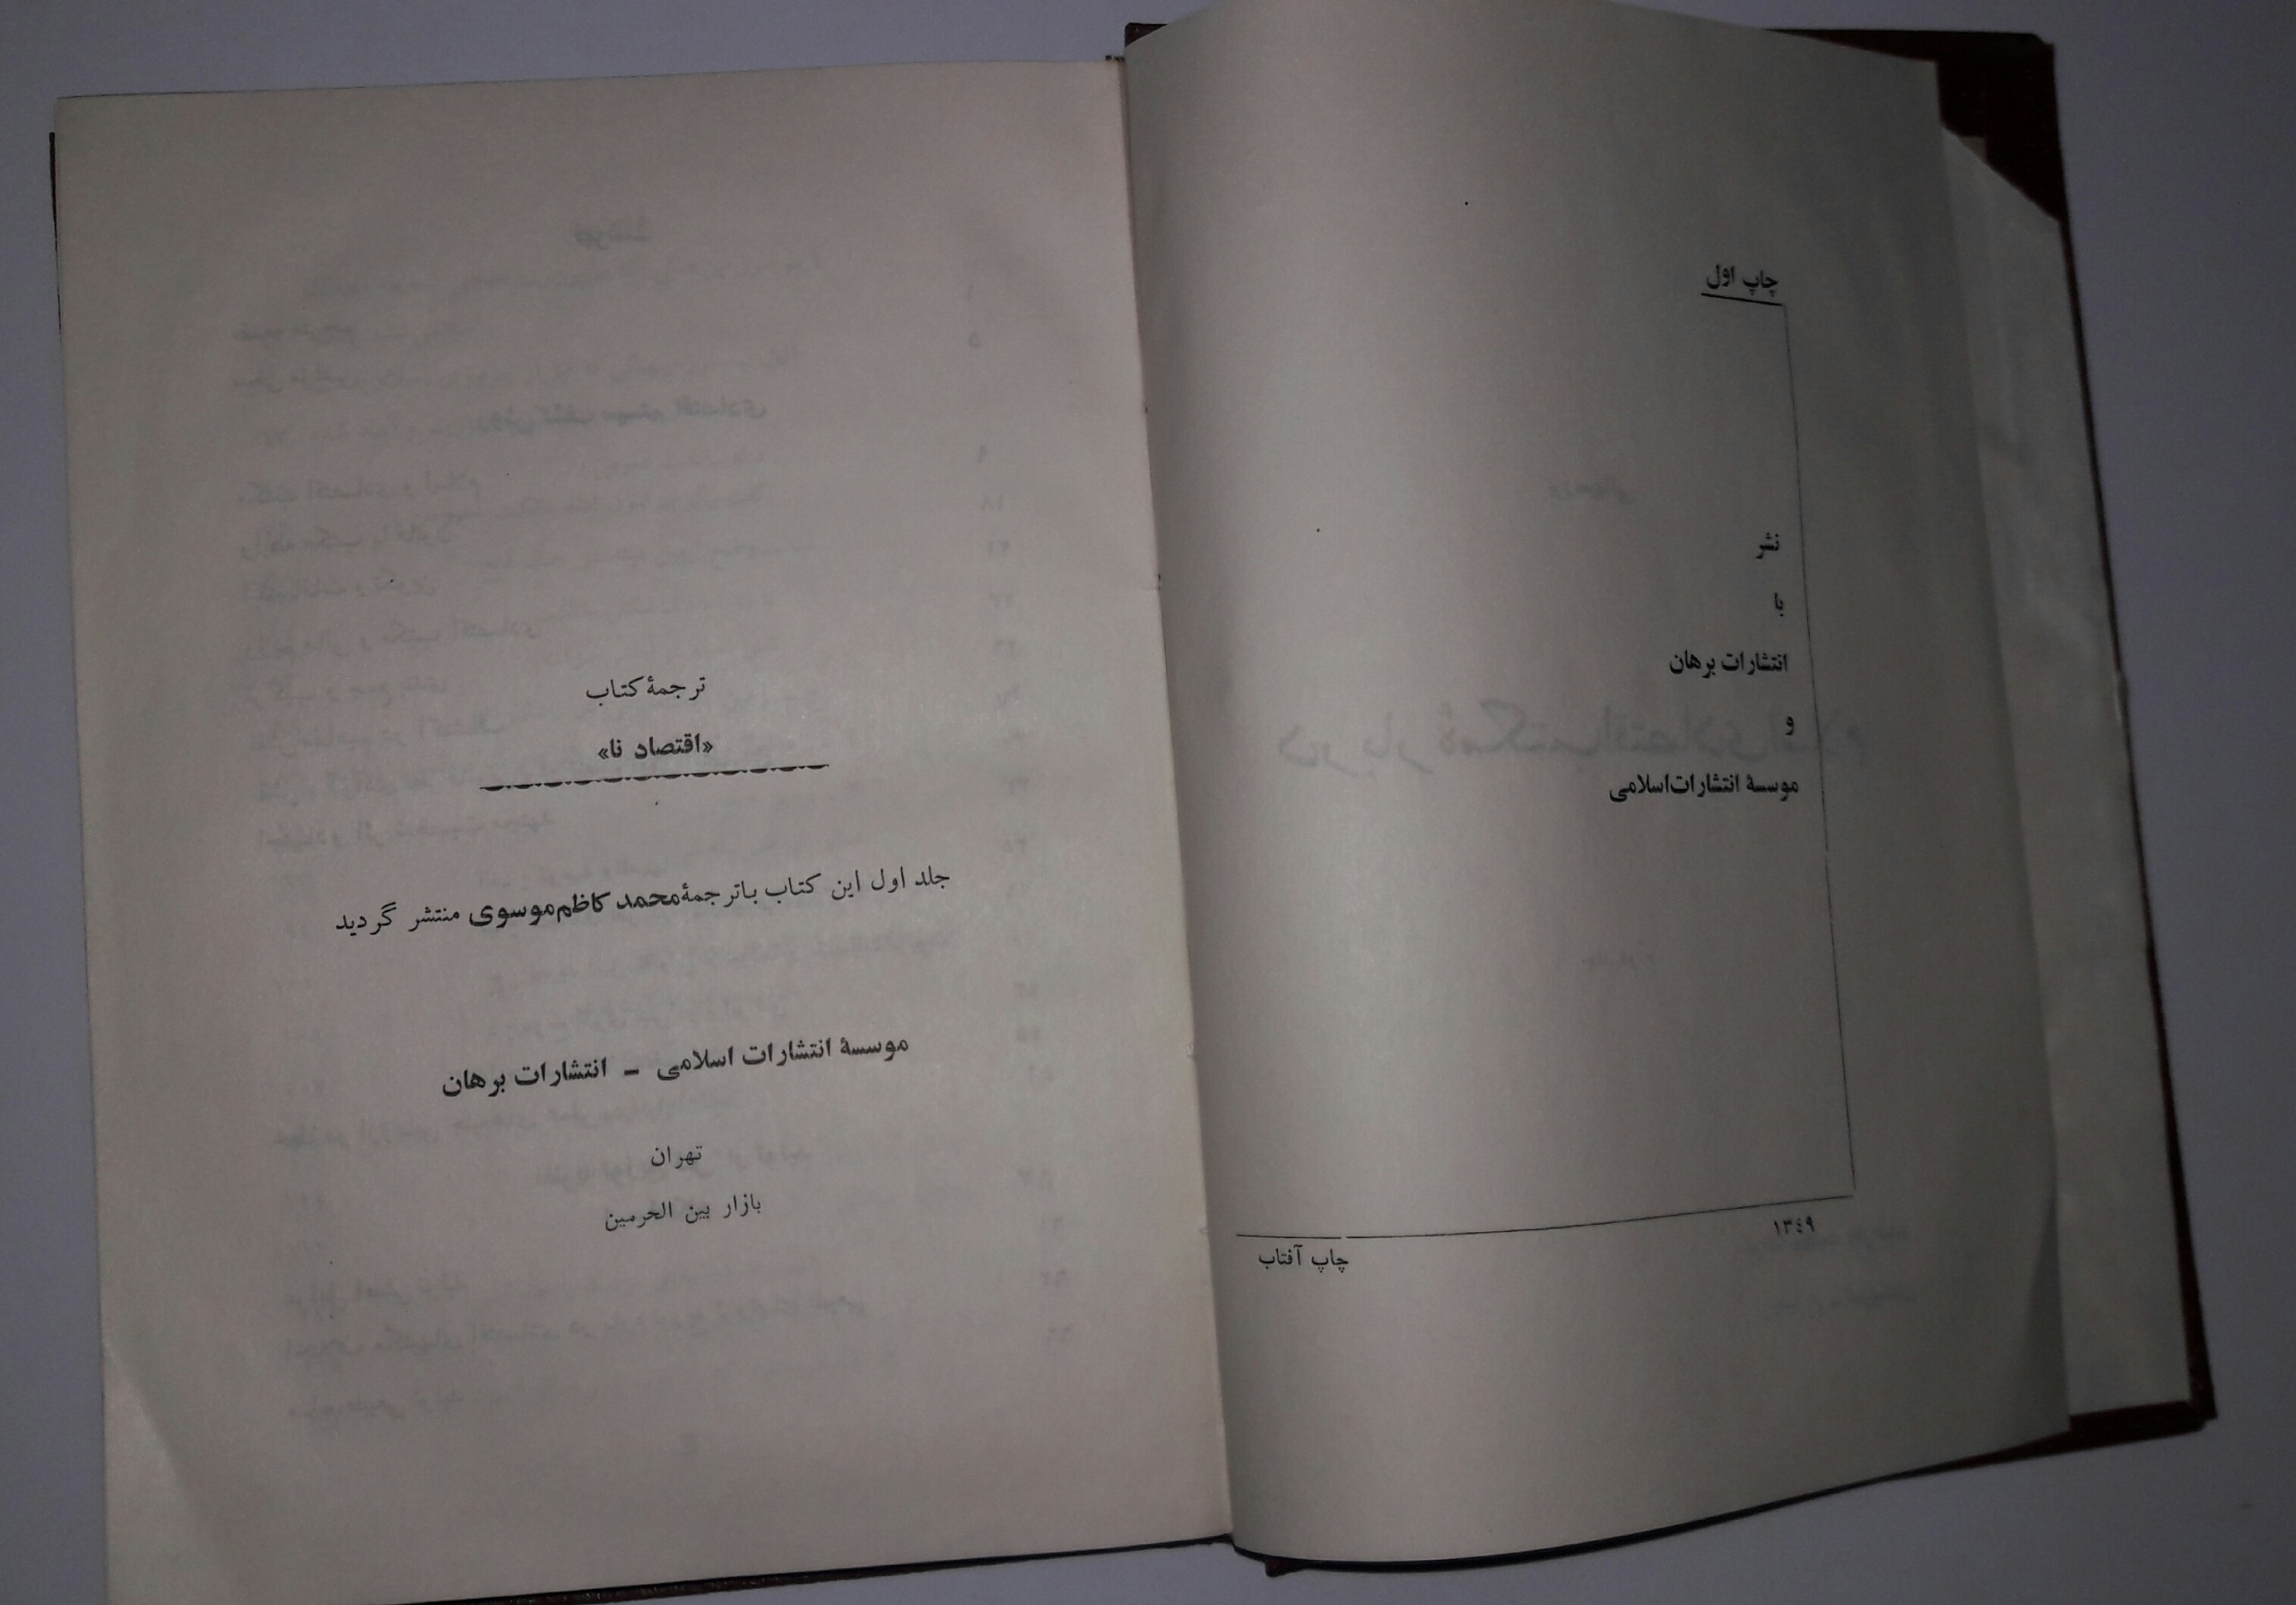 چاپ اول
نشر
با
انتشارات برهان
و
موسسهٔ انتشارات‌اسلامی
۱۳٤۹
چاپ آفتاب
ترجمهٔ کتاب
«اقتصاد نا»
جلد اول این کتاب باترجمهٔ محمد کاظم موسوی منتشر گردید
موسسهٔ انتشارات اسلامی – انتشارات برهان
تهران
بازار بین الحرمین